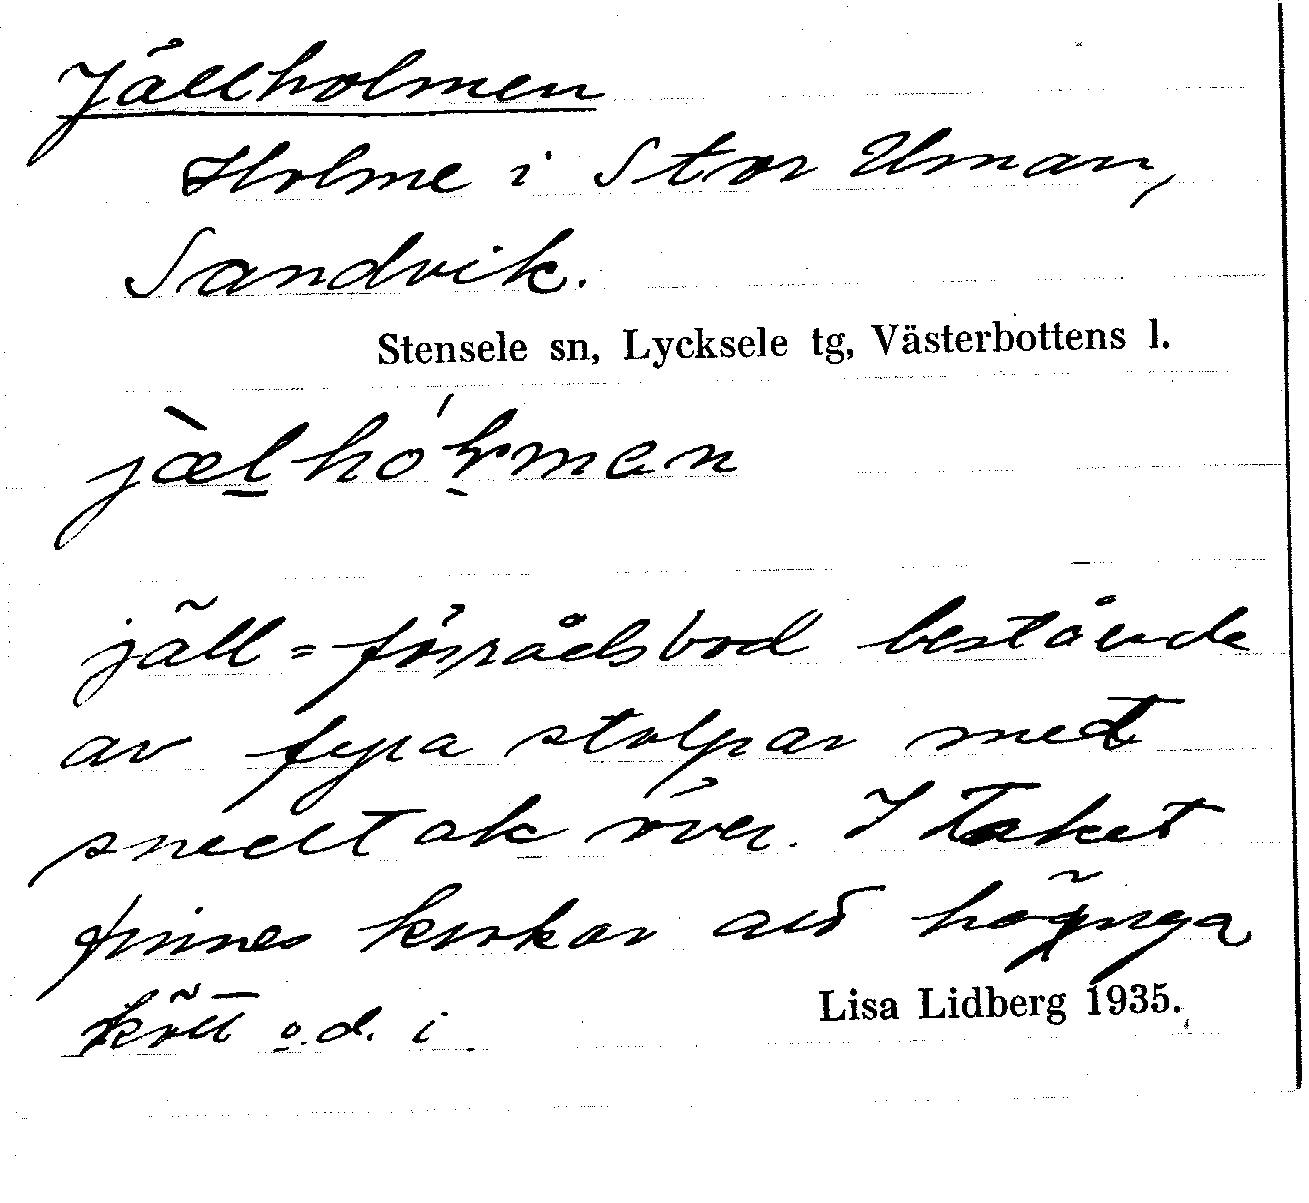 Jällholmen
Holme i Stor Uman,
Sandvik.
Stensele sn, Lycksele tg, Västerbottens l.
jæ̀lhóļmen
jäll = förrådsbod bestående
av fyra stolpar med
snedt ak över. I taket
finnes krokar att hänga
kött o.d. i
Lisa Lidberg 1935.